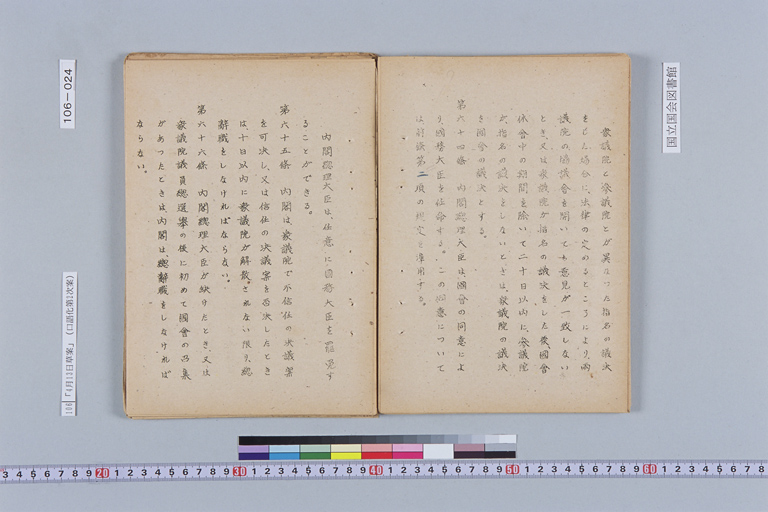 衆議院と参議院とが異なつた指名の議決
をした場合に、法律の定めるところにより、両
議院の協議会を開いても意見が一致しない
とき、又は衆議院が指名の議決をした後、國會
休會中の期間を除いて二十日以内に、参議院
が、指名の議決をしないときは、衆議院の議決
を國會の議決とする。
第六十四條 内閣總理大臣は、國會の同意によ
り、國務大臣を任命する。この同意について
は、前條第二項の規定を準用する。
内閣總理大臣は、任意に國務大臣を罷免す
ることができる。
第六十五條 内閣は、衆議院で不信任の決議案
を可決し、又は信任の決議案を否決したとき
は、十日以内に衆議院が解散されない限り、總
辭職をしなければならない。
第六十六條 内閣總理大臣が缺けたとき、又は
衆議院議員總選擧の後に初めて國會の召集
があつたときは、内閣は、總辭職をしなければ
ならない。
106-024
国立国会図書館
106 「4月13日草案」(口語化第2次案)
3 4 5 6 7 8 9 20 1 2 3 4 5 6 7 8 9 30 1 2 3 4 5 6 7 8 9 40 1 2 3 4 5 6 7 8 9 50 1 2 3 4 5 6 7 8 9 60 1 2 3 4 5 6 7 8